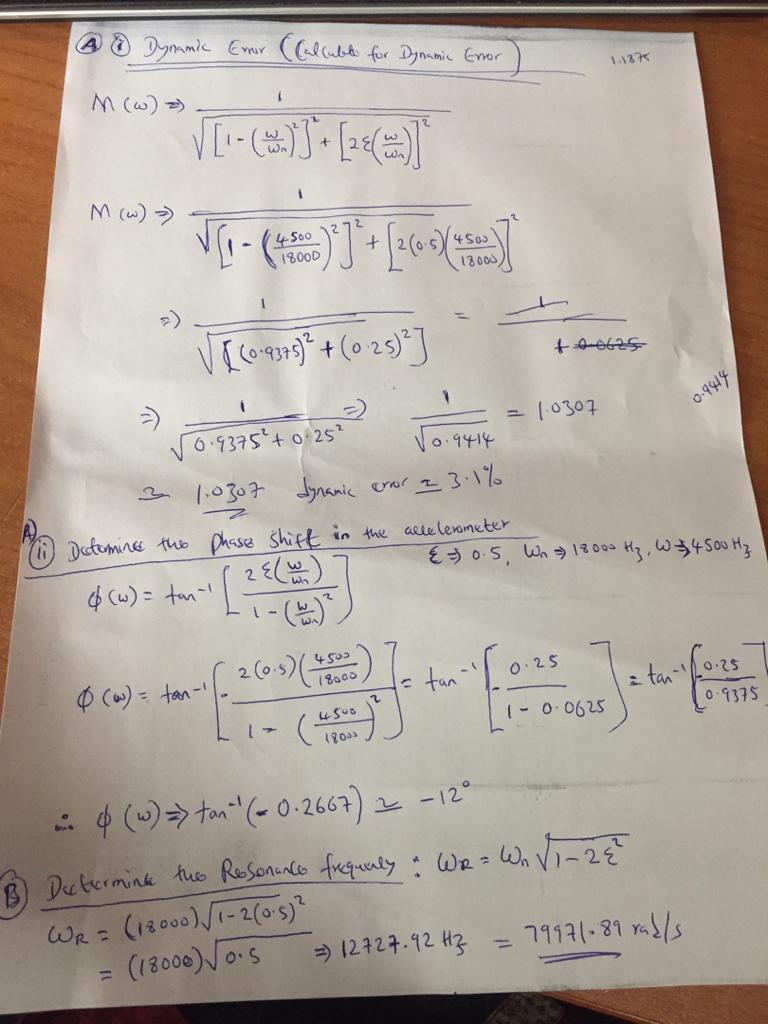 A i Dynamic Error (Calculate for Dynamic Error)
1.1375
M(ω) ⇒ 1 / √([1-(ω/ωn)²]² + [2ξ(ω/ωn)]²)
M(ω) ⇒ 1 / √([1-(4500/18000)²]² + [2(0.5)(4500/18000)]²)
⇒) 1 / √[(0.9375)² + (0.25)²] = 1 / + 0.0625
0.9414
⇒) 1 / √0.9375² + 0.25² ⇒) 1 / √0.9414 = 1.0307
≃ 1.0307 dynamic error ≃ 3.1%
A) ii Determine the phase shift in the accelerometer
ξ ⇒ 0.5, ωn ⇒ 18000 Hz, ω ⇒ 4500 Hz
φ(ω) = tan⁻¹ [2ξ(ω/ωn) / 1-(ω/ωn)²]
φ(ω) = tan⁻¹ [- 2(0.5)(4500/18000) / 1-(4500/18000)²] = tan⁻¹ [- 0.25 / 1-0.0625] = tan⁻¹ [- 0.25 / 0.9375]
∴ φ(ω) ⇒ tan⁻¹(-0.2667) ≃ -12°
B Determine the Resonance frequency : ωR = ωn √1-2ξ²
ωR = (18000)√1-2(0.5)²
= (18000)√0.5 ⇒ 12727.92 Hz = 79971.89 rad/s